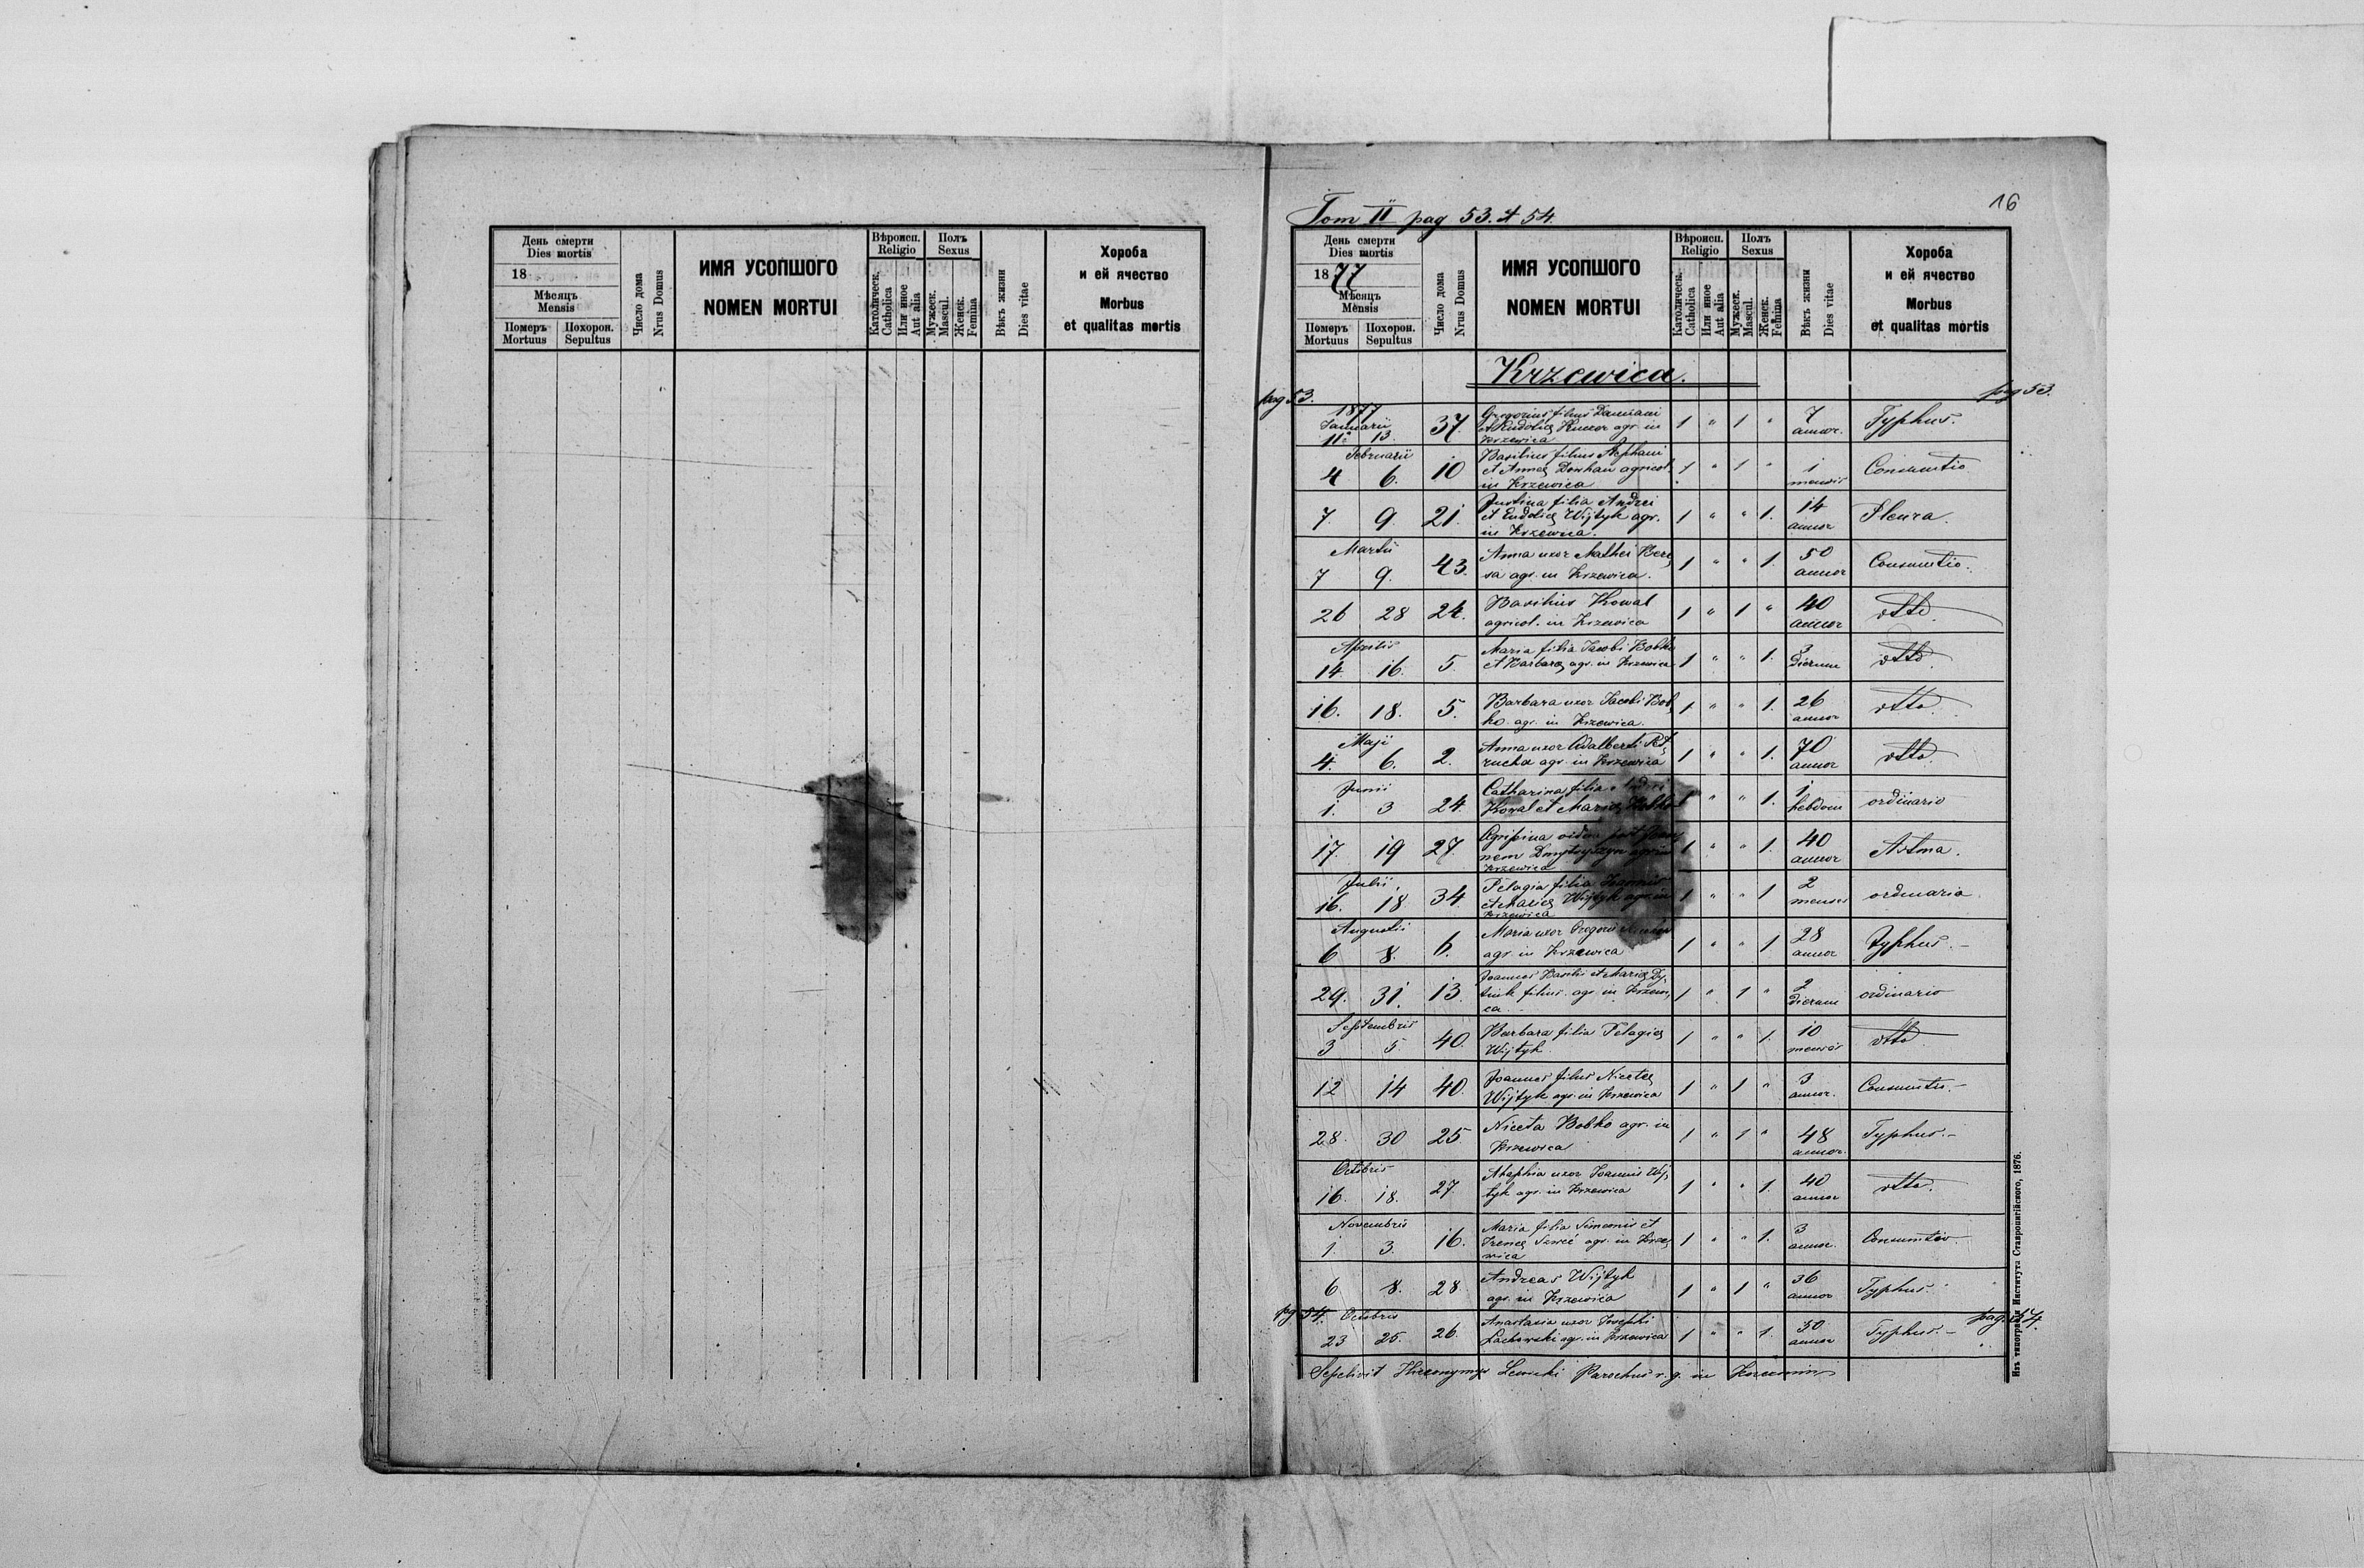 День смерти
Dies mortis
18
Мѣсяцъ
Mensis
Померъ
Mortuus
Похорон.
Sepultus
Число дома
Nrus Domus
ИМЯ УСОПШОГО
NOMEN MORTUI
Вѣроисп.
Religio
Католическ.
Catholica
Или иное
Aut alia
Полъ
Sexus
Мужеск.
Mascul.
Женск.
Femina
Вѣкъ жизни
Dies vitae
Хороба
и ей ячество
Morbus
et qualitas mortis
16
Tom II pag 53. et 54.
День смерти
Dies mortis
1877
Мѣсяцъ
Mensis
Померъ
Mortuus
Похорон.
Sepultus
Число дома
Nrus Domus
ИМЯ УСОПШОГО
NOMEN MORTUI
Вѣроисп.
Religio
Католическ.
Catholica
Или иное
Aut alia
Полъ
Sexus
Мужеск.
Mascul.
Женск.
Femina
Вѣкъ жизни
Dies vitae
Хороба
и ей ячество
Morbus
et qualitas mortis
Krzewica.
pag 53. pag 53.
1877
Januarii
11. 13. 37. Gregorius filius Damiani
et Eudociae agr. in
Krzewica 1 " 1 " 7
annor. Typhus.
Februarii
4 6. 10 Basilius filius Stephani
et Annae agricol.
in Krzewica 1 " 1 " 1
mensis Consumtio
7. 9. 21. Justina filia Andrei
et Eudociae Wijtyk agr.
in Krzewica. 1 " " 1. 14
annor Pleura.
Martii
7 9. 43. Anna uxor Mathei Bere
sa agr. in Krzewica. 1 " " 1. 50
annor Consumtio.
26 28 24. Basilius Kowal
agricol. in Krzewica 1 " 1 " 40
annor dtto.
Aprilis
14. 16. 5. Maria filia Jacobi Bobko
et Barbarae agr. in Krzewica 1 " " 1. 3
dierum dtto.
16. 18. 5. Barbara uxor Jacobi Bob
ko. agr. in Krzewica. 1 " " 1. 26
annor dtto.
Maji
4. 6. 2. Anna uxor Adalberti Pet
rucha agr. in Krzewica 1 " " 1. 70
annor dtto.
Junii
1. 3 24. Catharina filia
Kowal et Mariae Bobko 1 " " 1. 1
hebdom ordinario
17. 19 27. Agripina vidua post Joan
nem agr. in
Krzewica 1 " " 1. 40
annor Astma.
Julii.
16. 18. 34. Pelagia filia Joannis
et Mariae Wijtyk agr. in
Krzewica 1 " " 1 2
menses ordinaria
Augusti
6 8. 6. Maria uxor Gregorii
agr. in Krzewica 1 " " 1 28
annor Typhus.-
29. 31. 13. Joannes Basilii et Mariae
filius. agr. in Krzewi
ca 1 " 1 " 2
dierum ordinario
Septembris
3 5 40. Barbara filia Pelagiae
Wijtyk 1 " " 1. 10
mensis dtto.
12 14 40. Joannes filius Nicetae
Wijtyk agr. in Krzewica 1 " 1 " 3
annor. Consumtio.-
28. 30 25. Niceta Bobko agr. in
Krzewica 1 " 1 " 48
annor. Typhus.-
Octobris
16. 18. 27. uxor Joannis Wij
tyk agr. in Krzewica 1 " " 1. 40
annor dtto.
Novembris
1. 3. 16. Maria filia Simeonis et
Irenae agr. in Krze
wica 1 " " 1. 3
annor. Consumtio.
6 8. 28 Andreas Wijtyk
agr. in Krzewica 1 " 1 " 36
annor Typhus.
pag 54. Octobris pag. 54.
23 25. 26. Anastasia uxor Josephi
agr. in Krzewica 1 " " 1. 30
annor Typhus.-
Sepelivit Hieronymus Parochus r. g. in
Изъ типографіи Института Ставропигійского, 1876.